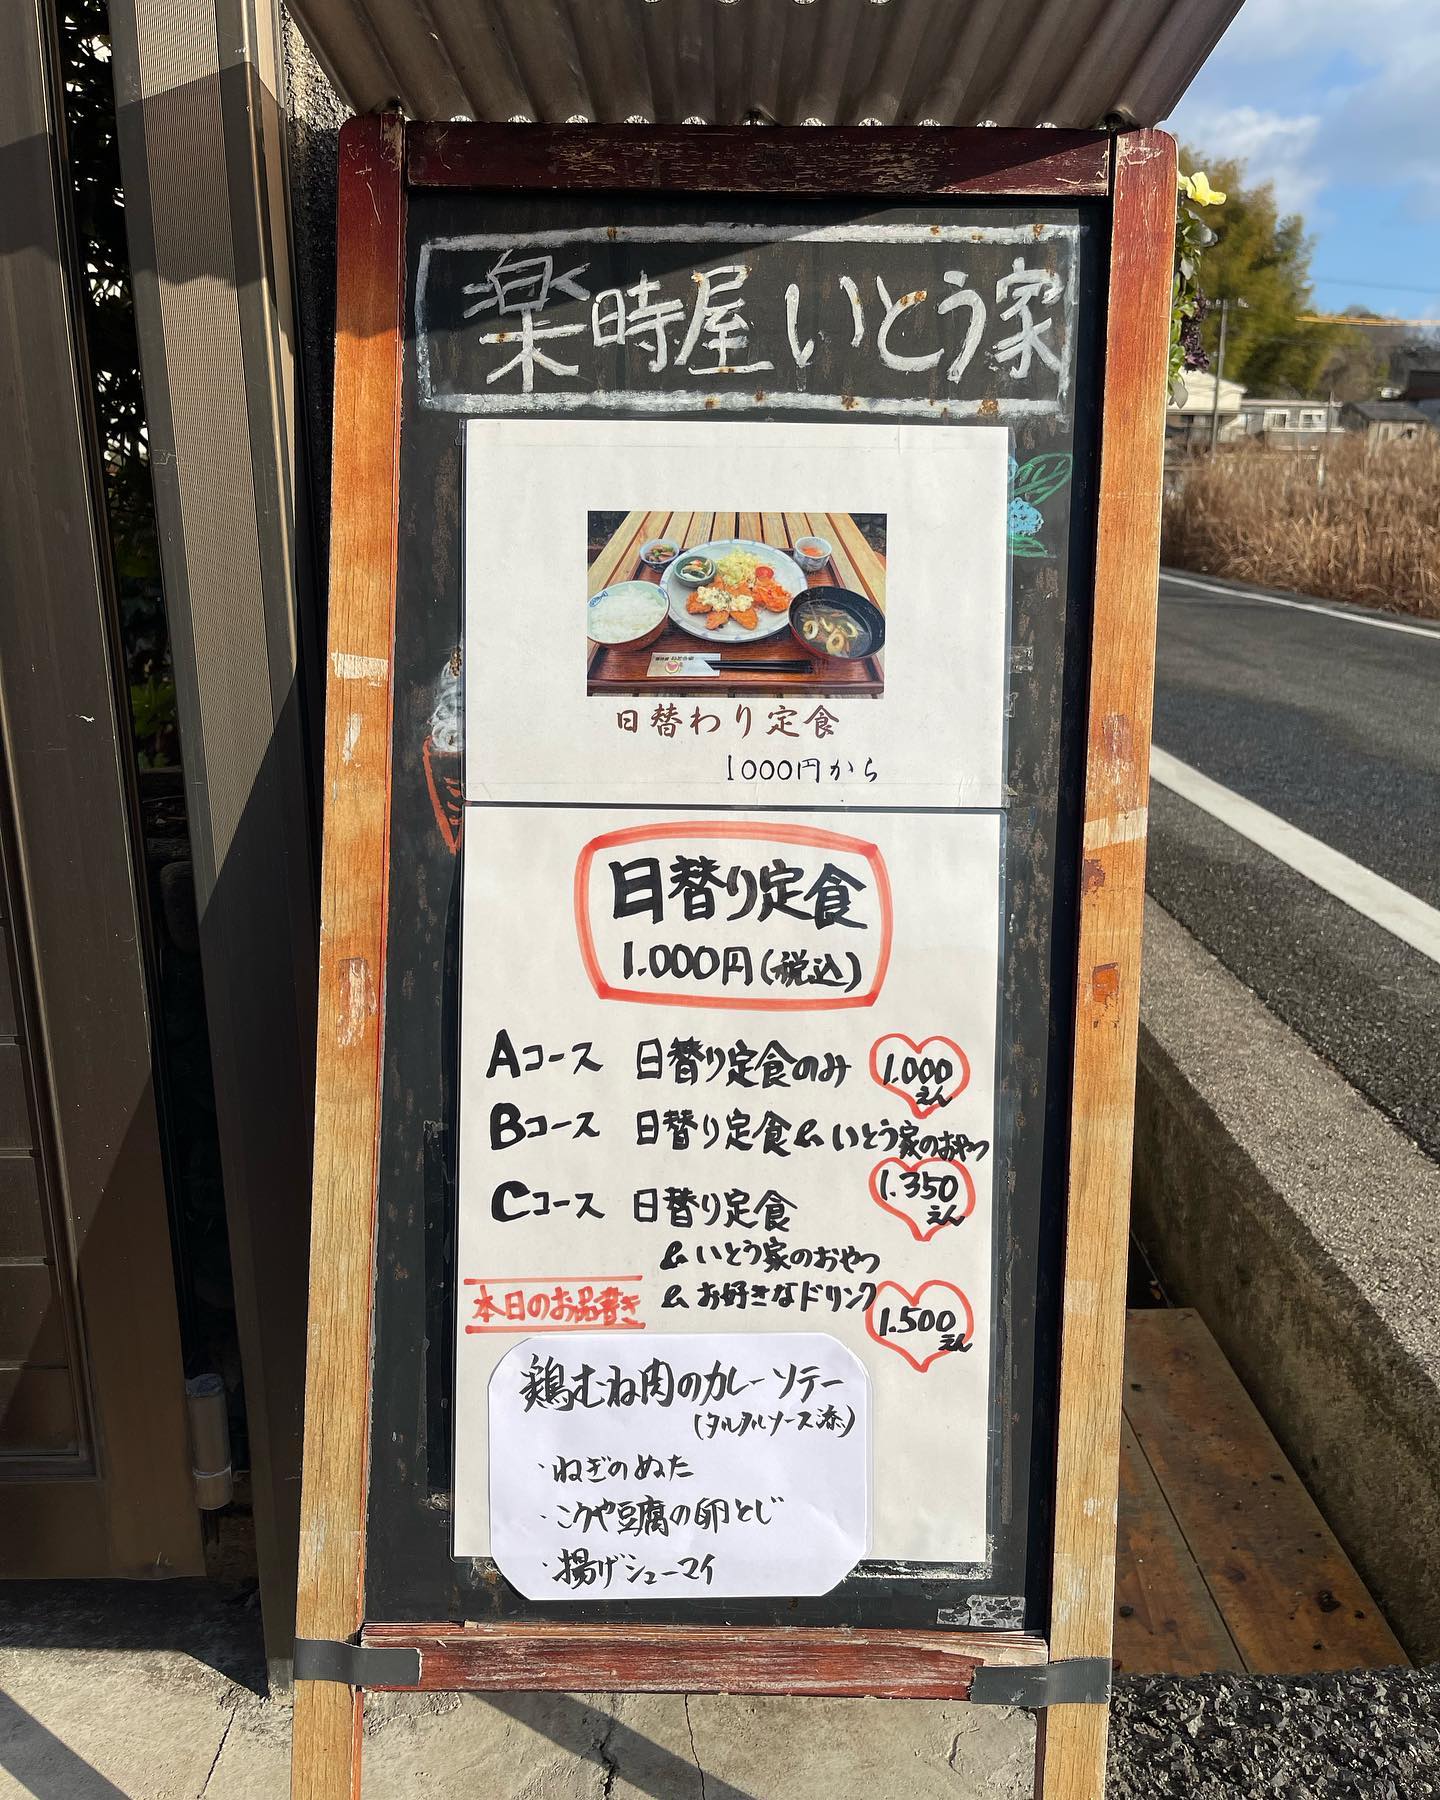 楽時屋 いとう家
日替わり定食
1000円から
日替り定食
1.000円(税込)
Aコース 日替り定食のみ 1.000えん
Bコース 日替り定食&いとう家のおやつ
1.350えん
Cコース 日替り定食
&いとう家のおやつ
&お好きなドリンク
1.500えん
本日のお品書き
鶏むね肉のカレーソテー
(タルタルソース添)
・ねぎのぬた
・こうや豆腐の卵とじ
・揚げシューマイ